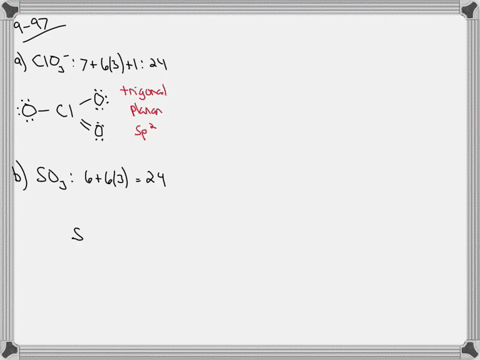 9-97
a) ClO₃⁻: 7+6(3)+1: 24
:Ö—Cl—Ö: trigonal
=Ö planar
sp²
b) SO₃: 6+6(3) = 24
S